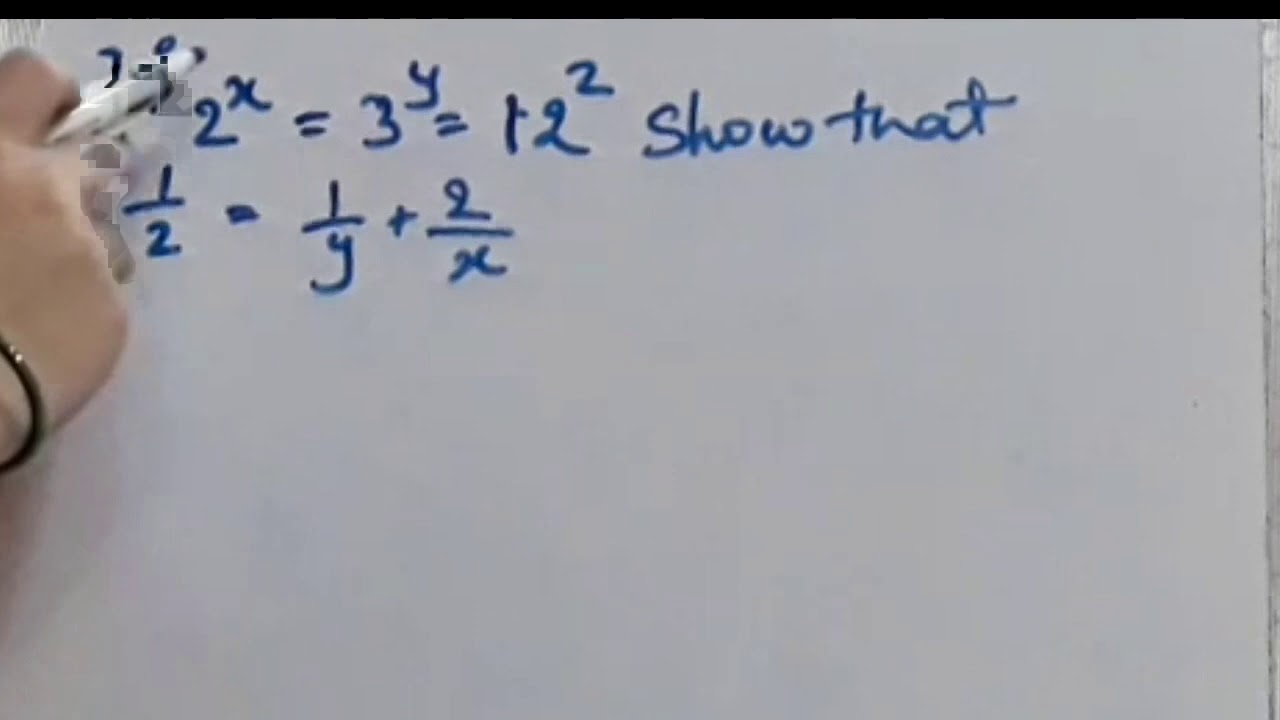 2^x = 3^y = 12^2 show that
1/2 = 1/y + 2/x